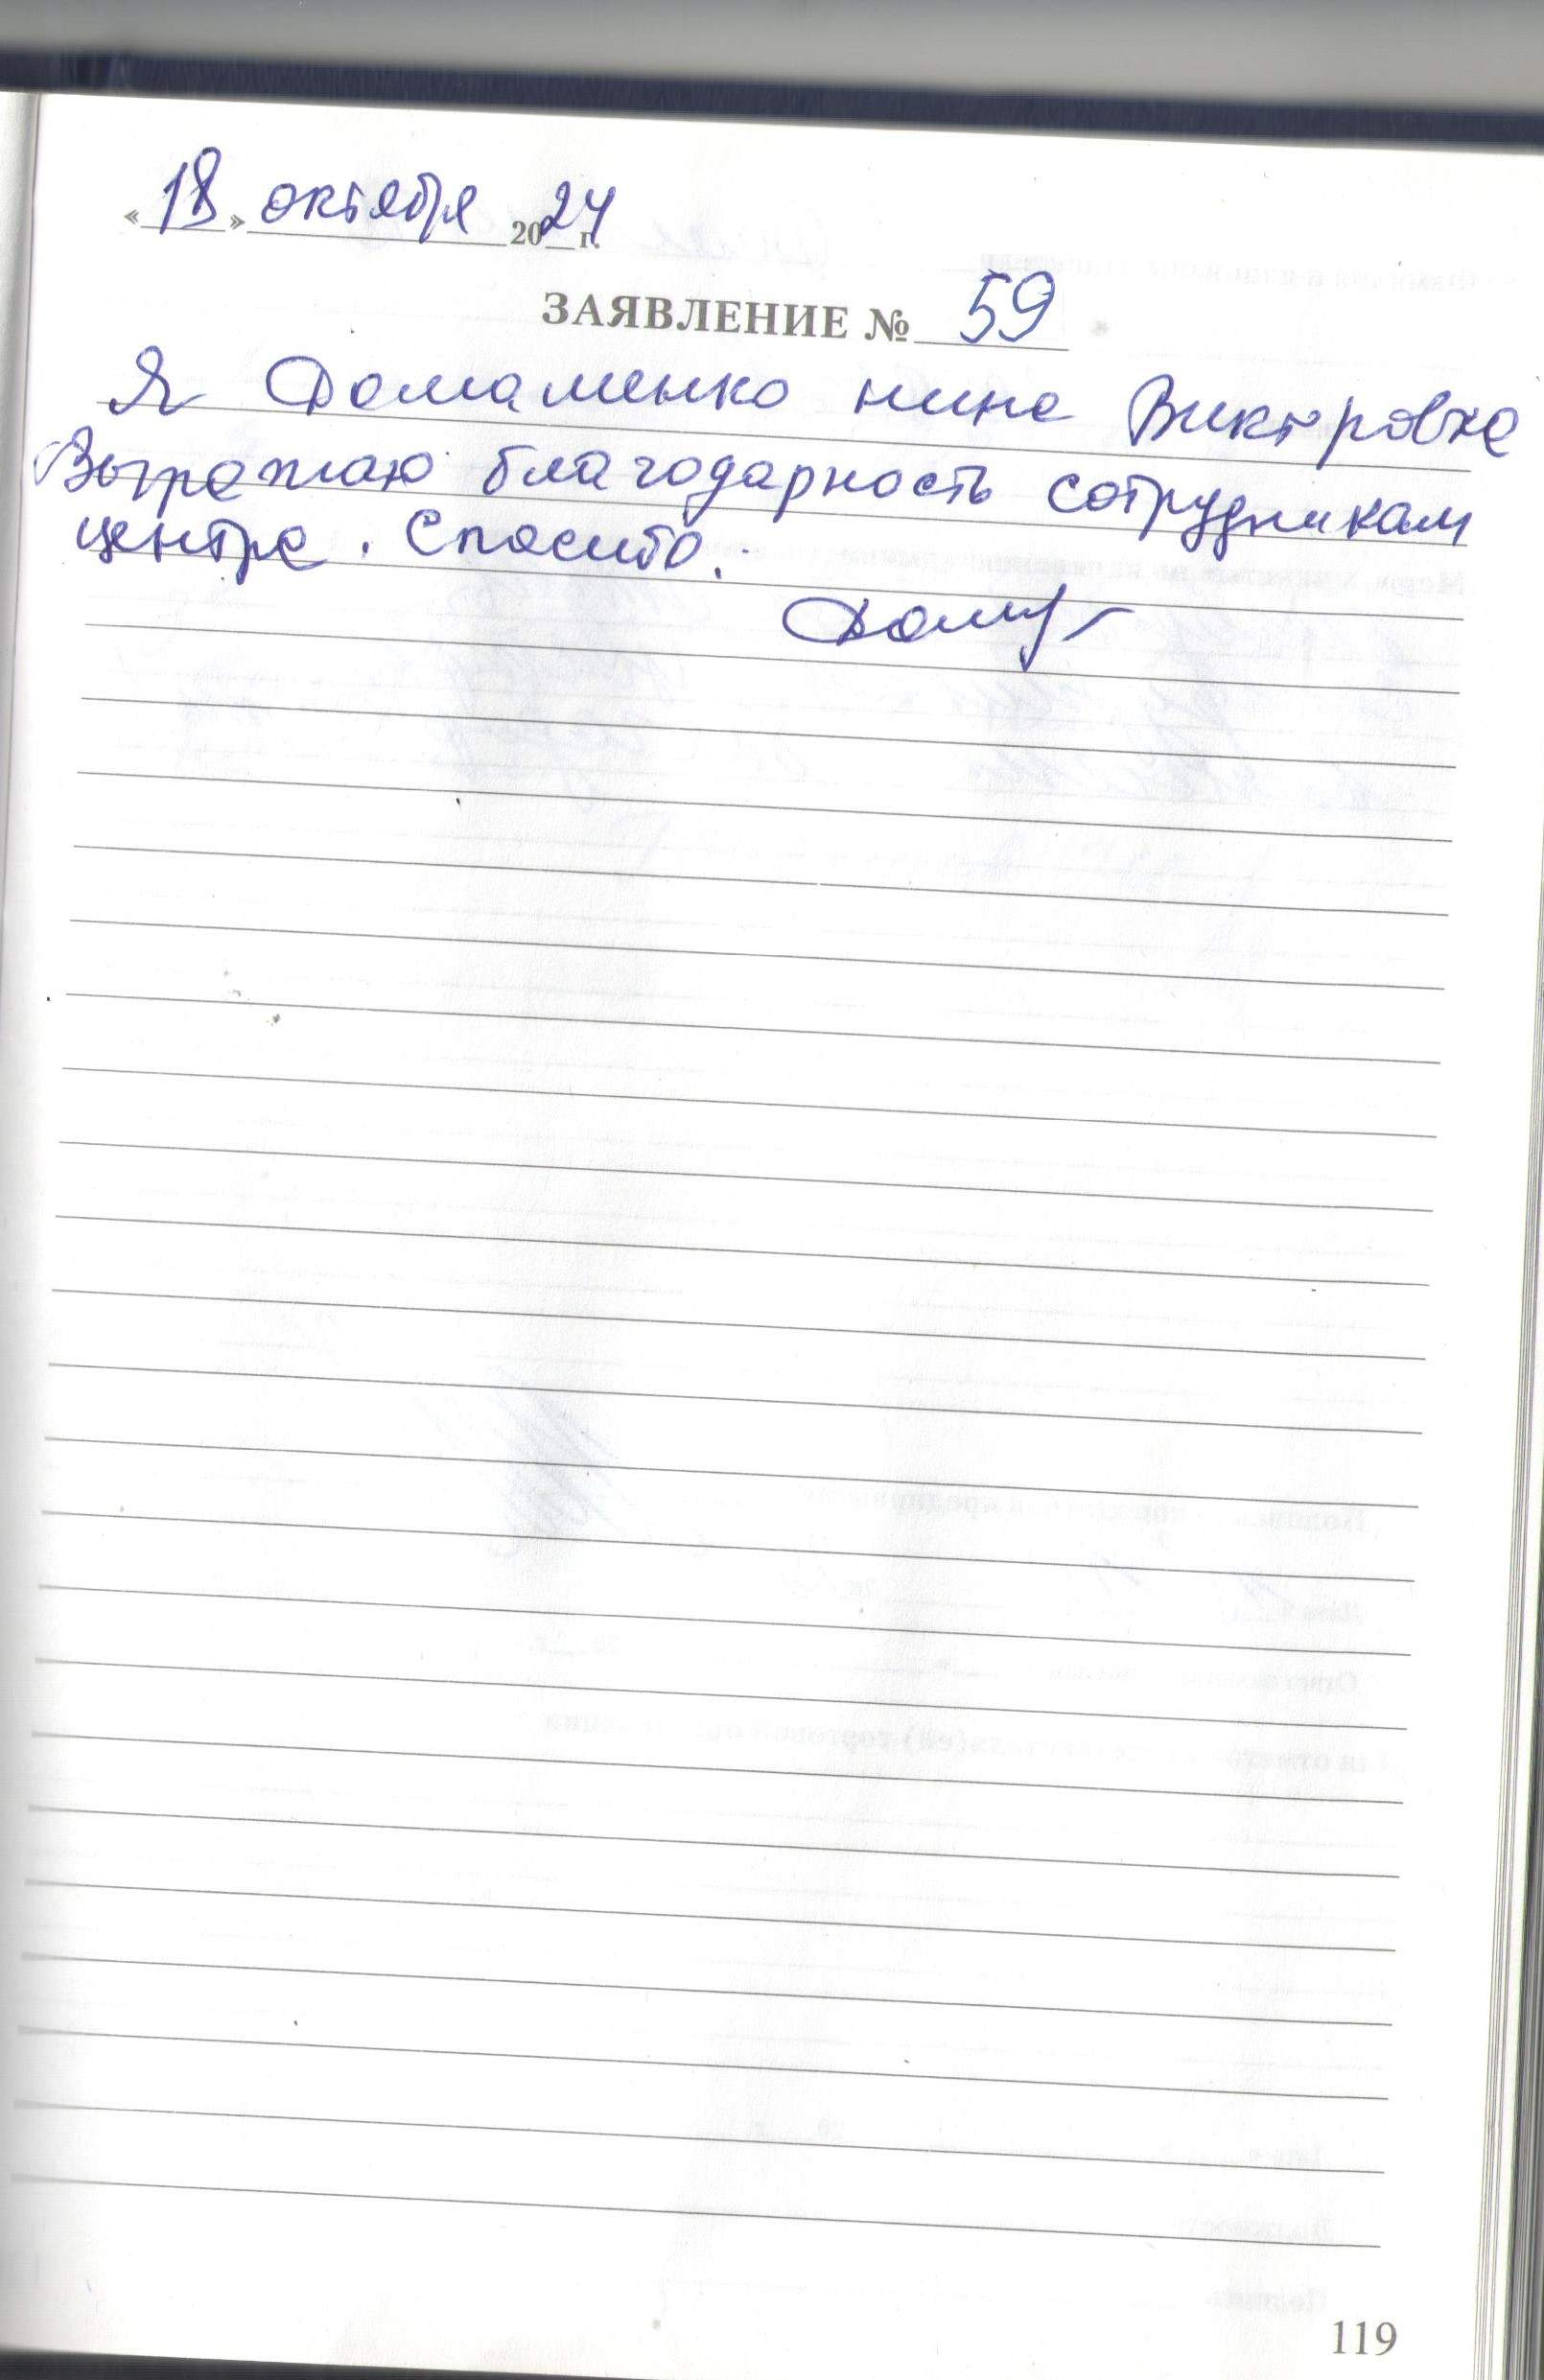 «18» октября 2024 г.
ЗАЯВЛЕНИЕ № 59
Я Домаменко нина Виктровна
Выражаю благодарность сотрудникам
центра. Спасибо.
119